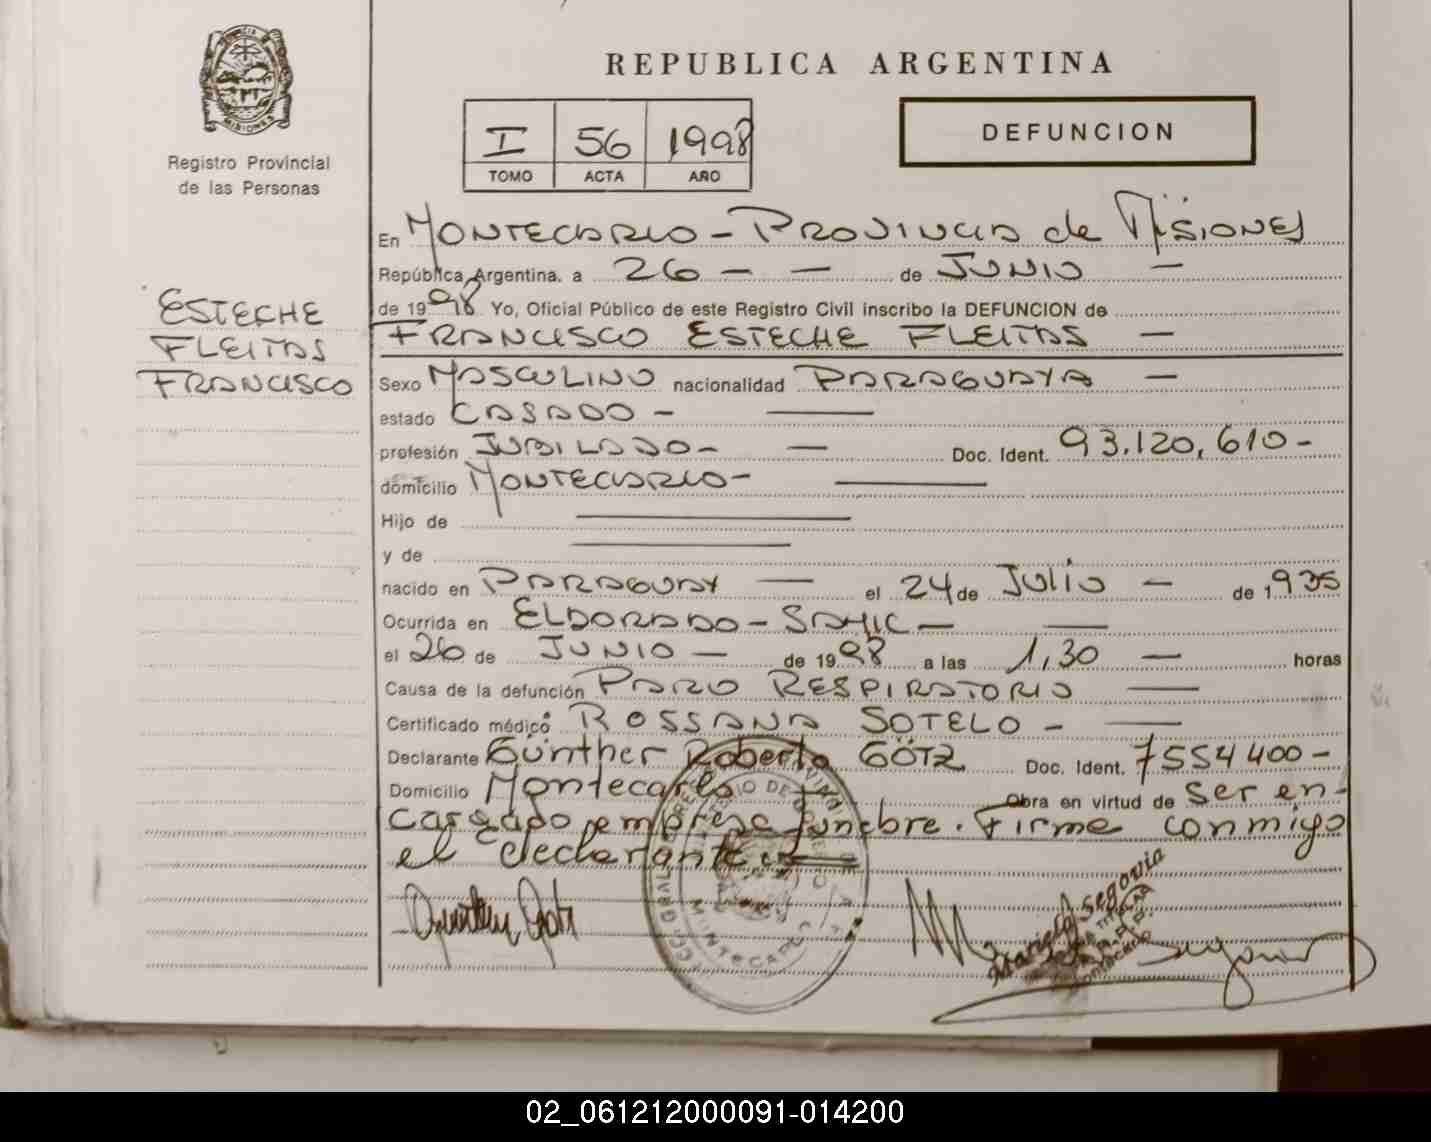 REPUBLICA ARGENTINA
MISIONES
Registro Provincial
de las Personas
I 56 1998
TOMO ACTA AÑO
DEFUNCION
ESTECHE
FLEITAS
FRANCISCO
En MONTECARLO - PROVINCIA de MISIONES
República Argentina. a 26 - - de JUNIO -
de 1998 Yo, Oficial Público de este Registro Civil inscribo la DEFUNCION de
FRANCISCO ESTECHE FLEITAS -
Sexo MASCULINO nacionalidad PARAGUAYA -
estado CASADO -
profesión JUBILADO - - Doc. Ident. 93.120,610 -
domicilio MONTECARLO -
Hijo de
y de
nacido en PARAGUAY - el 24 de JULIO - de 1.935
Ocurrida en ELDORADO - SAMIC -
el 26 de JUNIO - de 1998 a las 1,30 - horas
Causa de la defunción PARO RESPIRATORIO -
Certificado médico ROSSANA SOTELO -
Declarante Günther Roberto GÖTZ Doc. Ident. 7554400 -
Domicilio Montecarlo - Obra en virtud de ser en-
cargado empresa fúnebre. Firma conmigo
el declarante.
Mariela Segovia
MONTECARLO
02_061212000091-014200